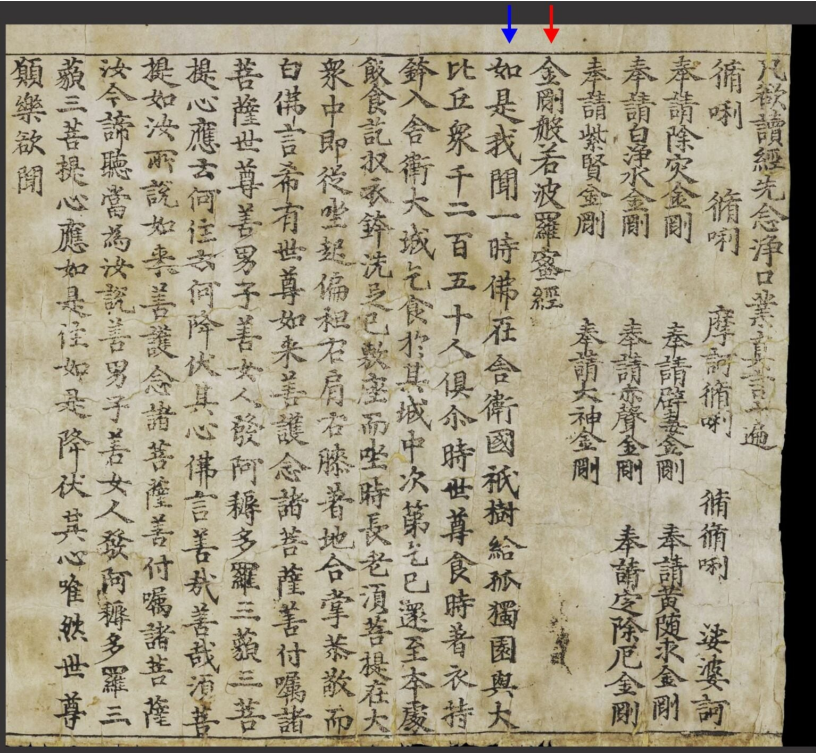 凡欲讀經先念淨口業真言一遍
脩唎 脩唎 摩訶脩唎 脩脩唎 娑婆訶
奉請除灾金剛 奉請辟毒金剛 奉請黄随求金剛
奉請白淨水金剛 奉請赤聲金剛 奉請定除厄金剛
奉請紫賢金剛 奉請大神金剛
金剛般若波羅蜜經
如是我聞一時佛在舍衛國祇樹給孤獨園與大
比丘衆千二百五十人俱尒時世尊食時著衣持
鉢入舍衛大城乞食於其城中次第乞已還至本處
飯食訖収衣鉢洗足已敷座而坐時長老須菩提在大
衆中即從坐起偏袒右肩右膝著地合掌恭敬而
白佛言希有世尊如来善護念諸菩薩善付嘱諸
菩薩世尊善男子善女人發阿耨多羅三藐三菩
提心應云何住云何降伏其心佛言善哉善哉須菩
提如汝所說如来善護念諸菩薩善付嘱諸菩薩
汝今諦聽當為汝說善男子善女人發阿耨多羅三
藐三菩提心應如是住如是降伏其心唯然世尊
願樂欲聞